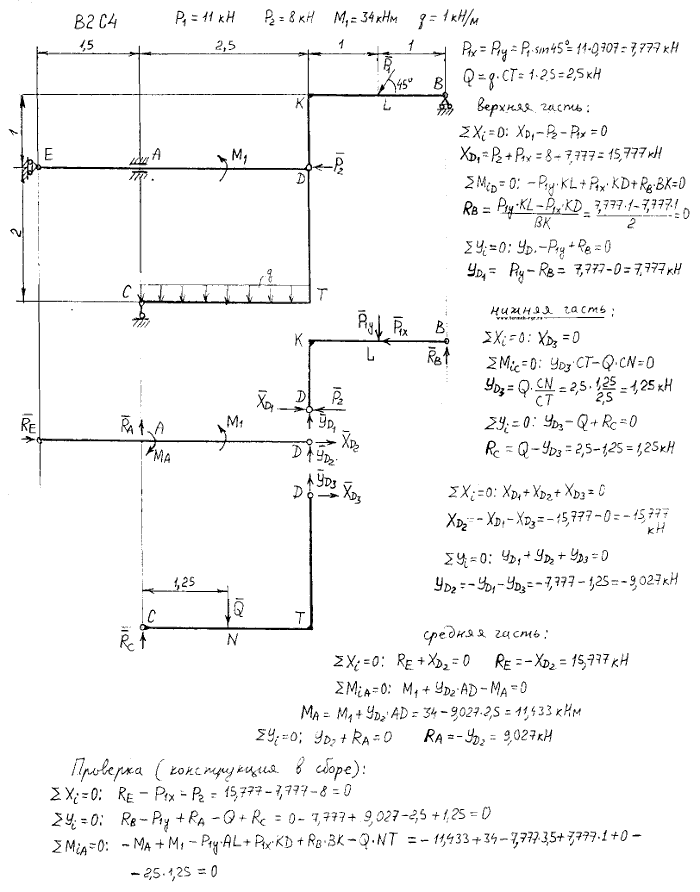 B2 C4 P₁ = 11 кН P₂ = 8 кН M₁ = 34 кНм q = 1 кН/м
1,5 2,5 1 1
P̄₁
45°
K L B
1
E A M₁ P̄₂
D
2
q
C T
P₁ₓ = P₁y = P₁·sin45° = 11·0,707 = 7,777 кН
Q = q·CT = 1·2,5 = 2,5 кН
верхняя часть:
ΣXᵢ=0: X_D1 – P₂ – P₁ₓ = 0
X_D1 = P₂ + P₁ₓ = 8 + 7,777 = 15,777 кН
ΣM_iD=0: –P₁y·KL + P₁ₓ·KD + R_B·BK = 0
R_B = (P₁y·KL – P₁ₓ·KD)/BK = (7,777·1 – 7,777·1)/2 = 0
ΣYᵢ=0; y_D1 – P₁y + R_B = 0
y_D1 = P₁y – R_B = 7,777 – 0 = 7,777 кН
нижняя часть:
ΣXᵢ=0: X_D3 = 0
ΣM_iC=0: y_D3·CT – Q·CN = 0
y_D3 = Q·CN/CT = 2,5·1,25/2,5 = 1,25 кН
ΣYᵢ=0: y_D3 – Q + R_C = 0
R_C = Q – y_D3 = 2,5 – 1,25 = 1,25 кН
ΣXᵢ=0: X_D1 + X_D2 + X_D3 = 0
X_D2 = –X_D1 – X_D3 = –15,777 – 0 = –15,777 кН
ΣYᵢ=0: y_D1 + y_D2 + y_D3 = 0
y_D2 = –y_D1 – y_D3 = –7,777 – 1,25 = –9,027 кН
P̄₁y P̄₁ₓ B
K L R̄_B
D P̄₂
X̄_D1 ȳ_D1
R̄_E R̄_A A M₁ X̄_D2
M_A D ȳ_D2
ȳ_D3
D X̄_D3
1,25
Q̄
C N T
R̄_C
средняя часть:
ΣXᵢ=0: R_E + X_D2 = 0 R_E = –X_D2 = 15,777 кН
ΣM_iA=0: M₁ + y_D2·AD – M_A = 0
M_A = M₁ + y_D2·AD = 34 – 9,027·2,5 = 11,433 кНм
ΣYᵢ=0; y_D2 + R_A = 0 R_A = –y_D2 = 9,027 кН
Проверка (конструкция в сборе):
ΣXᵢ=0: R_E – P₁ₓ – P₂ = 15,777 – 7,777 – 8 = 0
ΣYᵢ=0: R_B – P₁y + R_A – Q + R_C = 0 – 7,777 + 9,027 – 2,5 + 1,25 = 0
ΣM_iA=0: –M_A + M₁ – P₁y·AL + P₁ₓ·KD + R_B·BK – Q·NT = –11,433 + 34 – 7,777·3,5 + 7,777·1 + 0 –
– 2,5·1,25 = 0